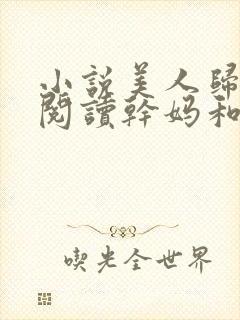 小說美人歸
閱讀幹妈和
喫光全世界